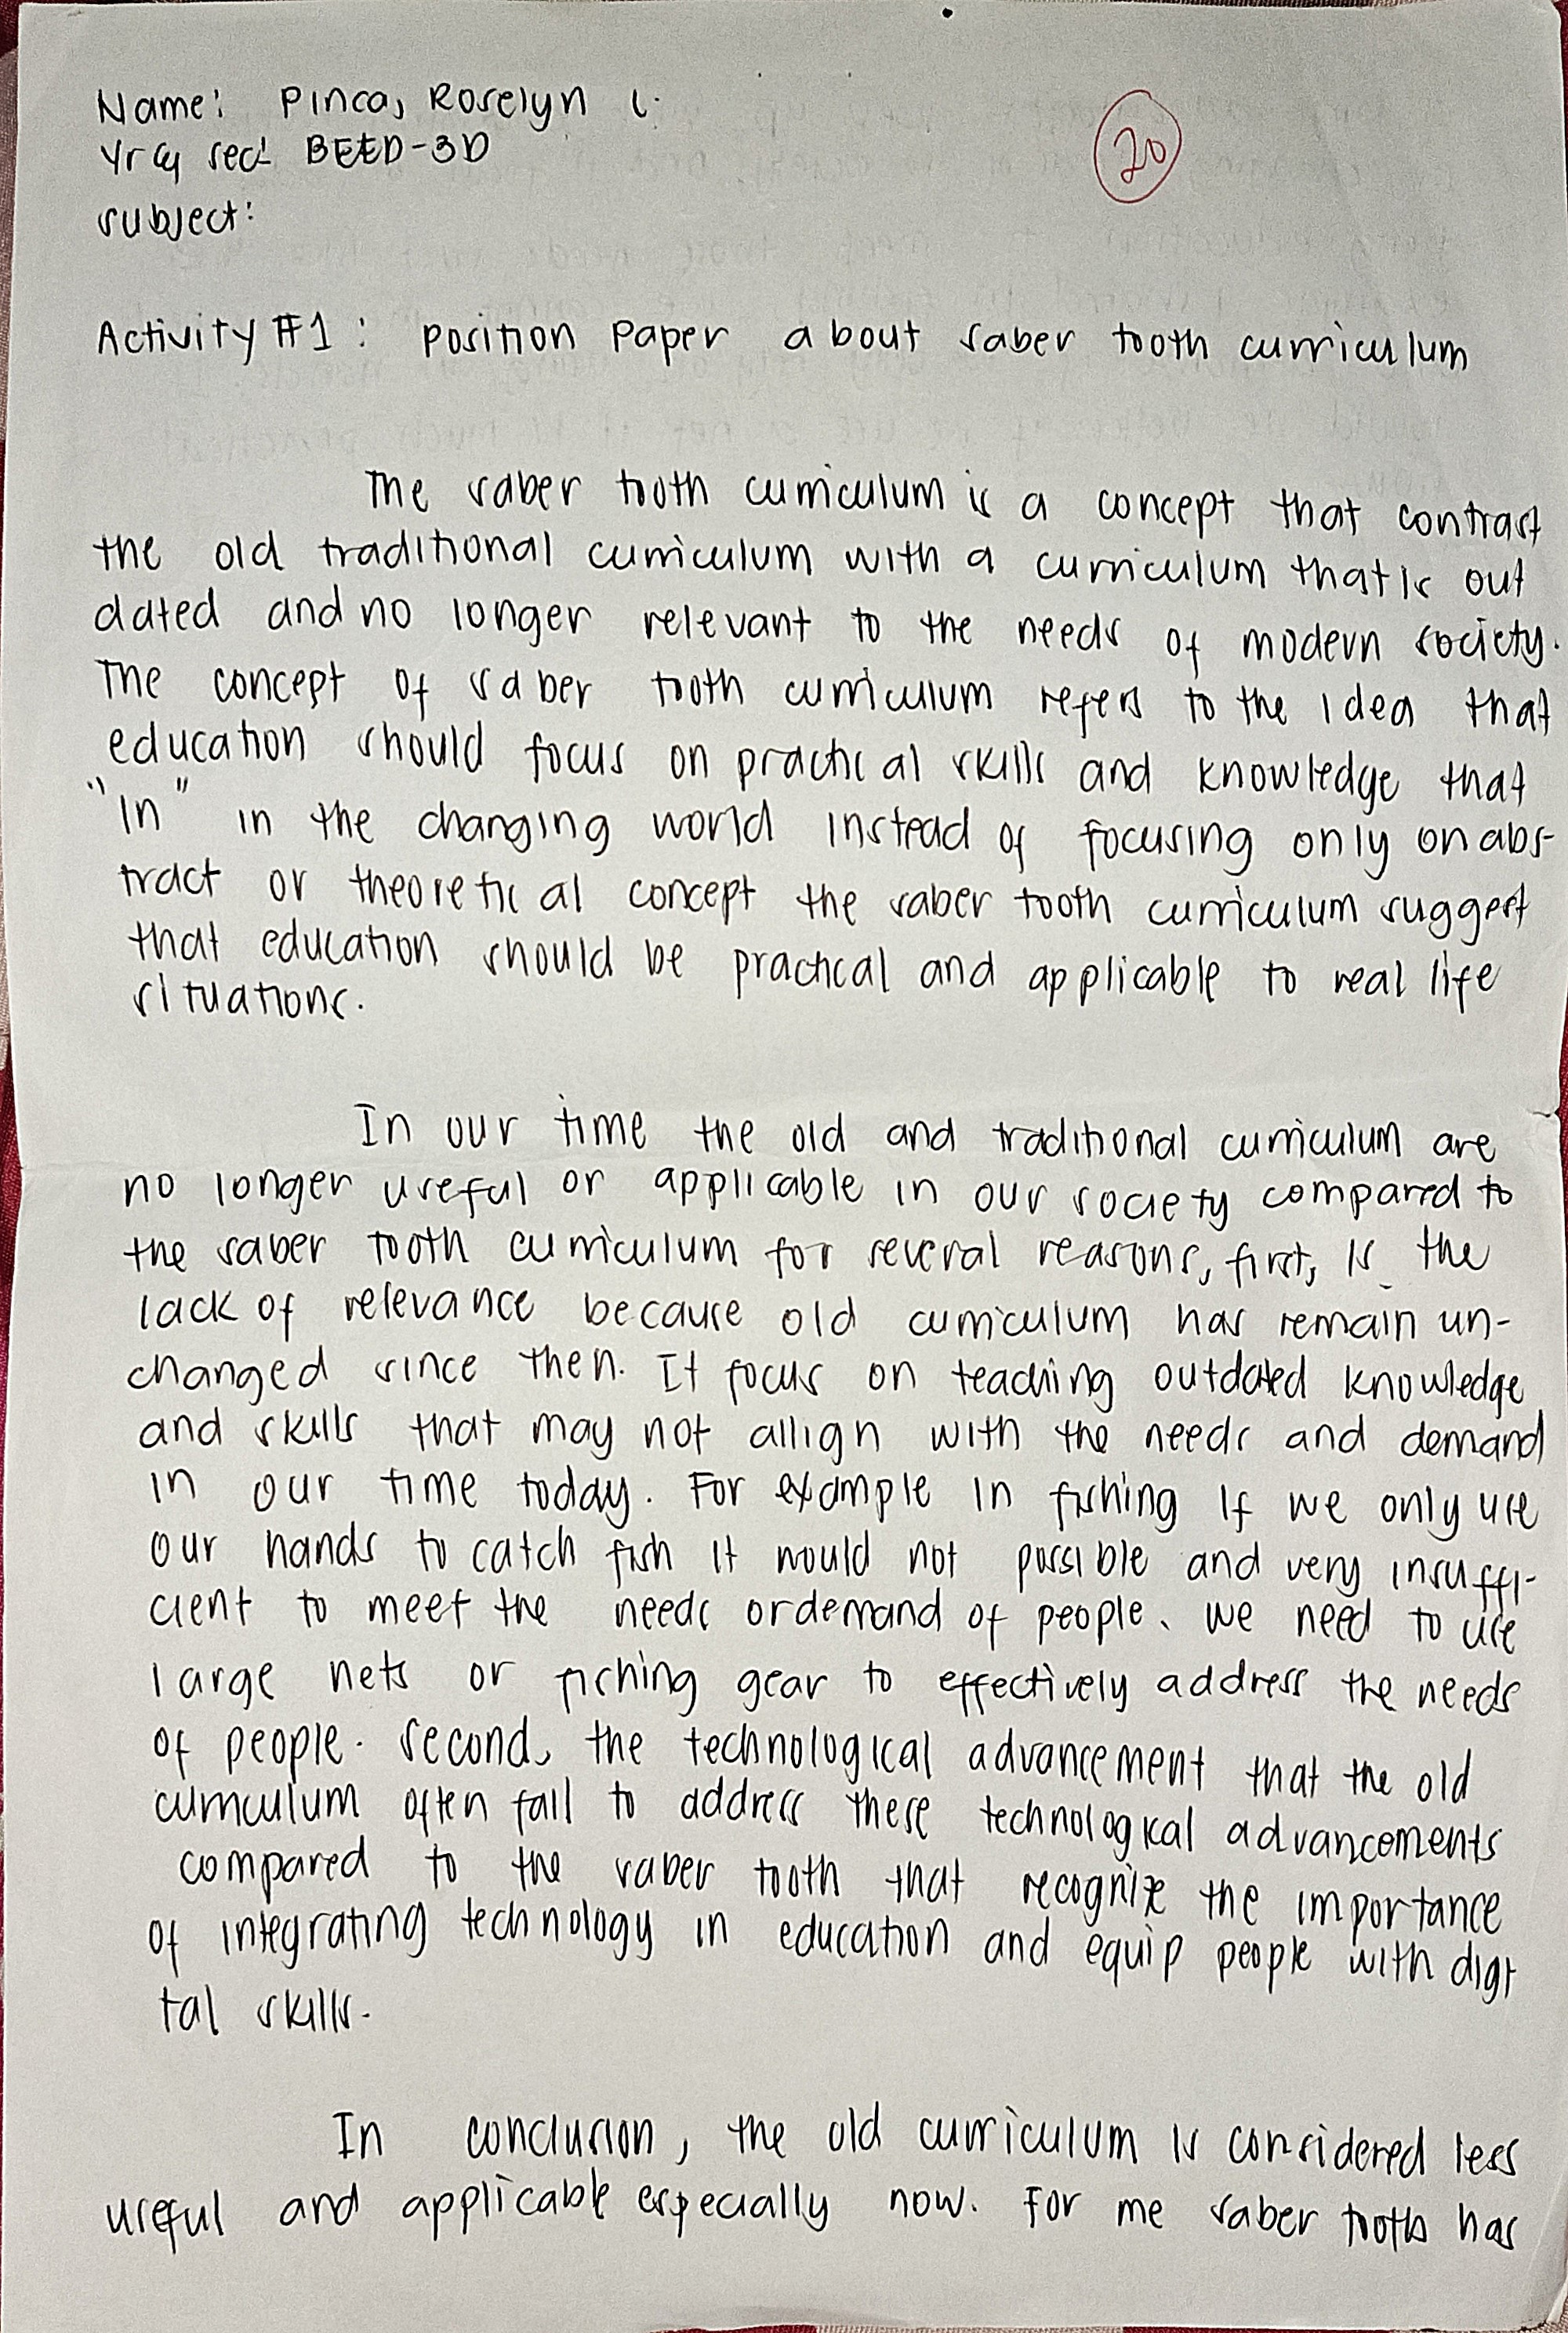 Name: Pinca, Roselyn L.
20
Yr & sec: BEED-3D
subject:
Activity #1: Position Paper about saber tooth curriculum
The saber tooth curriculum is a concept that contrast
the old traditional curriculum with a curriculum that is out
dated and no longer relevant to the needs of modern society.
The concept of saber tooth curriculum refers to the idea that
education should focus on practical skills and knowledge that
"in" in the changing world instead of focusing only on abs-
tract or theoretical concept the saber tooth curriculum suggest
that education should be practical and applicable to real life
situations.
In our time the old and traditional curriculum are
no longer useful or applicable in our society compared to
the saber tooth curriculum for several reasons, first, is the
lack of relevance because old curriculum has remain un-
changed since then. It focus on teaching outdated knowledge
and skills that may not allign with the needs and demand
in our time today. For example in fishing if we only use
our hands to catch fish it would not possible and very insuffi-
cient to meet the needs or demand of people. We need to use
large nets or fishing gear to effectively address the needs
of people. Second, the technological advancement that the old
curriculum often fail to address these technological advancements
compared to the saber tooth that recognize the importance
of integrating technology in education and equip people with digi
tal skills.
In conclusion, the old curriculum is considered less
useful and applicable especially now. For me saber tooth has